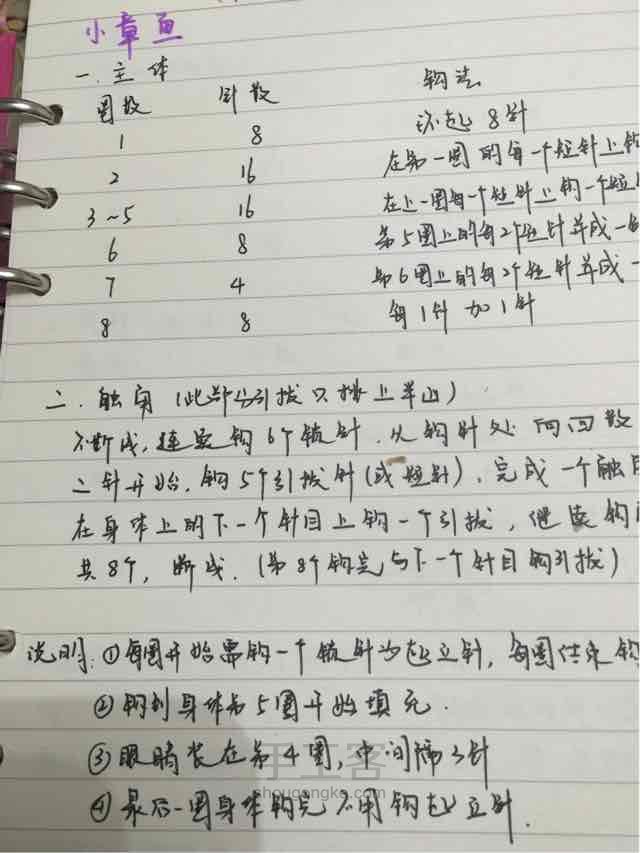 小章鱼
一.主体
圈数 针数 钩法
1 8 环起8针
2 16 在第一圈的每一个短针上钩
3~5 16 在上一圈每一个短针上钩一个短
6 8 第5圈上的每2个短针并成一
7 4 第6圈上的每2个短针并成一
8 8 每1针加1针
二.触角(此部分引拔只挑上半山)
不断线,连续钩6个锁针.从钩针处向回数
二针开始,钩5个引拔针(或短针),完成一个触
在身体上的下一个针目上钩一个引拔,继续钩
共8个,断线.(第8个钩完与下一个针目钩引拔)
说明:①每圈开始需钩一个锁针为起立针,每圈结束钩
②钩到身体第5圈开始填充.
③眼睛装在第4圈,中间隔3针
④最后一圈身体钩完不用钩起立针.
手工客
shougongke.com